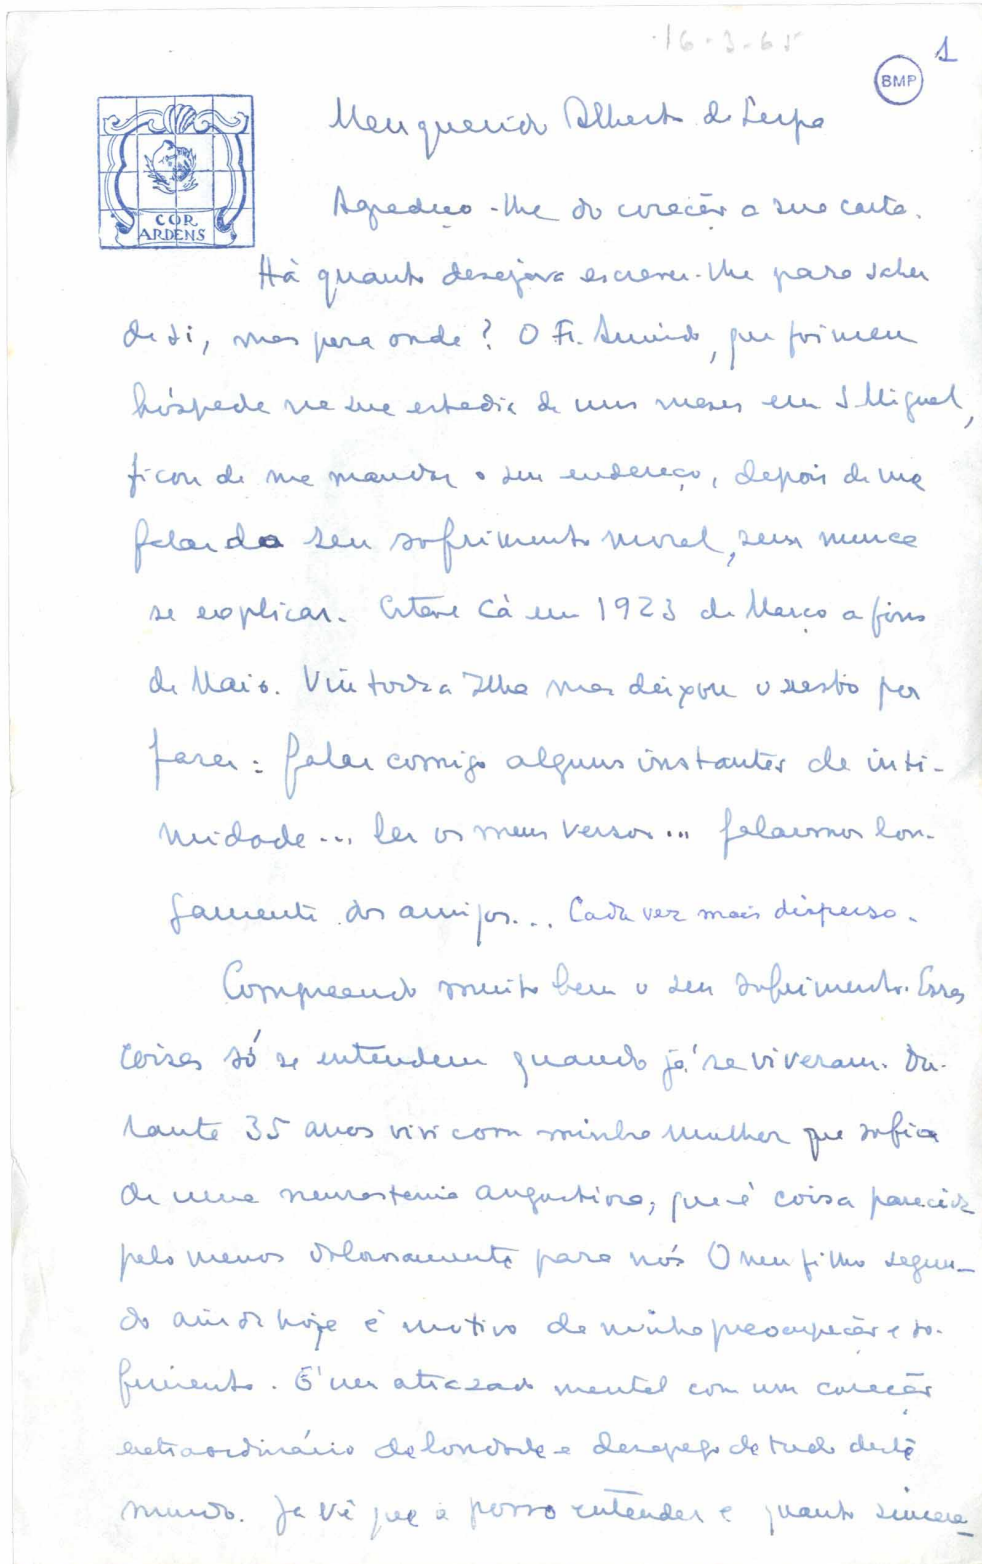 16-3-65
1
BMP
COR
ARDENS
Meu querido Alberto de Serpa
Agradeço-lhe do coração a sua carta.
Há quanto desejava escrever-lhe para saber
de si, mas para onde? O Fr. Armindo, que foi meu
hóspede na sua estadia de uns meses em S Miguel,
ficou de me mandar o seu endereço, depois de me
falar do seu sofrimento moral, sem nunca
se explicar. Esteve cá em 1923 de Março a fins
de Maio. Viu toda a Ilha mas deixou o resto por
fazer: falar comigo alguns instantes de inti-
midade... ler os meus versos... falarmos lon-
gamente dos amigos... Cada vez mais disperso.
Compreendo muito bem o seu sofrimento. Essas
coisas só se entendem quando já se viveram. Du-
rante 35 anos vivi com minha mulher que sofria
de uma neurastenia angustiosa, que é coisa parecida
pelo menos dolorosamente para nós O meu filho segun-
do ainda hoje é motivo de minha preocupação e so-
frimento. É um atrazado mental com um coração
extraordinário de bondade e desapego de tudo deste
mundo. Já vê que o posso entender e quanto sincera-